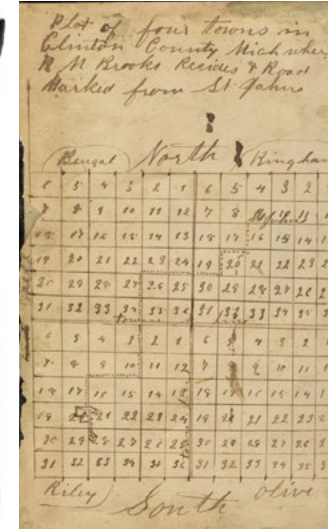 Plot of four towns in
Clinton County Mich wher
N M Brooks Recides & Road
Marked from St Johns
Bengal North Bingham
6 5 4 3 2 1 6 5 4 3 2
7 8 9 10 11 12 7 8 11
18 17 16 15 14 13 18 17 16 15 14 1
19 20 21 22 23 24 19 20 21 22 23 2
30 29 28 27 26 25 30 29 28 27 26 2
31 32 33 34 35 36 31 32 33 34 35 3
town line
6 5 4 3 2 1 6 5 4 3 2
7 8 9 10 11 12 7 8 9 10 11
18 17 16 15 14 13 18 17 16 15 14 1
19 20 21 22 23 24 19 20 21 22 23 2
30 29 28 27 26 25 30 29 28 27 26 2
31 32 33 34 35 36 31 32 33 34 35 3
Riley South Olive